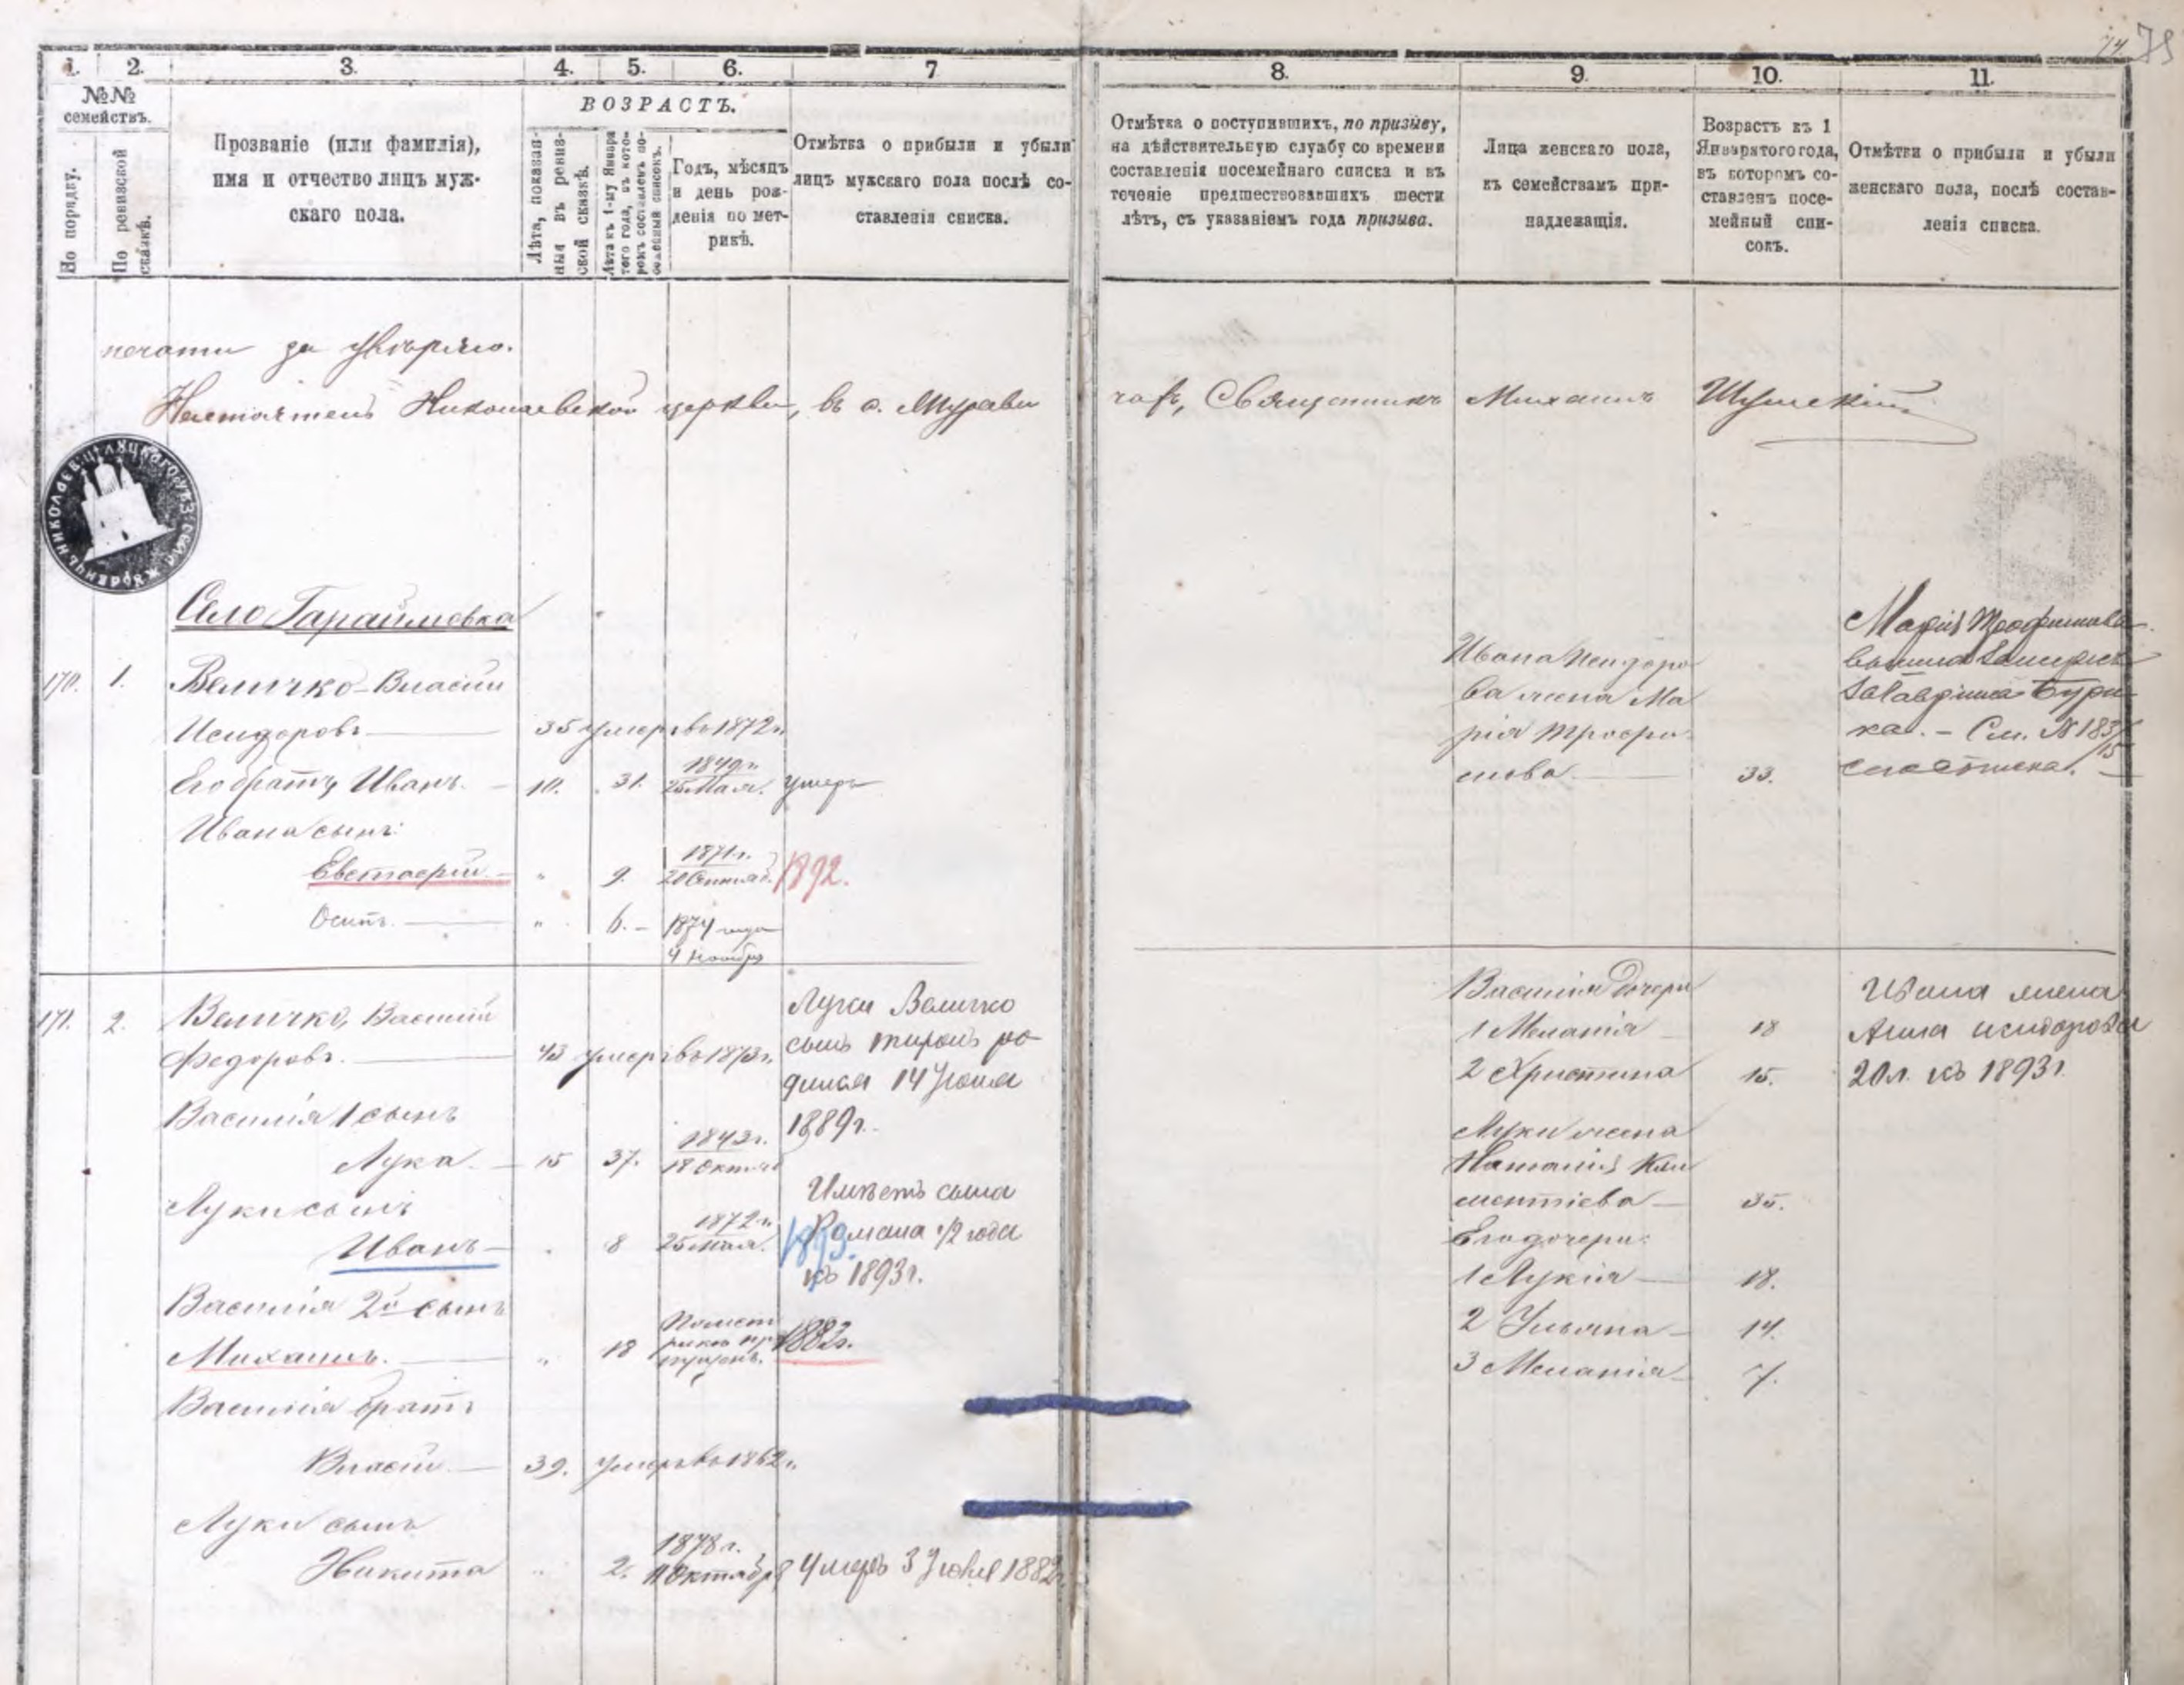 74. 79
1. 2. 3. 4. 5. 6. 7 8. 9. 10. 11.
№№ семействъ.
По порядку.
По ревизской сказкѣ.
Прозваніе (или фамилія),
имя и отчество лицъ муж-
скаго пола.
ВОЗРАСТЪ.
Лѣта, показан-
ныя въ ревиз-
ской сказкѣ.
Лѣта къ 1-му Января
того года, въ кото-
ромъ составленъ по-
семейный списокъ.
Годъ, мѣсяцъ
и день рож-
денія по мет-
рикѣ.
Отмѣтка о прибыли и убыли
лицъ мужскаго пола послѣ со-
ставленія списка.
Отмѣтка о поступившихъ, по призыву,
на дѣйствительную службу со времени
составленія посемейнаго списка и въ
теченіе предшествовавшихъ шести
лѣтъ, съ указаніемъ года призыва.
Лица женскаго пола,
къ семействамъ при-
надлежащія.
Возрастъ къ 1
Января того года,
въ которомъ со-
ставленъ посе-
мейный спи-
сокъ.
Отмѣтки о прибыли и убыли
женскаго пола, послѣ состав-
ленія списка.
печати за увѣряю.
Настоятель Николаевской церкви, въ с. Мурави
чахъ, Священникъ Михаилъ Шумскій
Село Гараймовка
170. 1. Величко Власій
Исидоровъ 35 умеръ въ 1872 г.
Его братъ, Иванъ. 10. 31. 1849 г. 25 Мая. умеръ
Ивана сынъ:
Евстафій " 9. 1871 г. 20 Сентяб. 1892.
Осипъ. " 6. 1874 года
4 Ноября
Ивана Исидоро
ва жена Ма
рія Трофи
мова. 33.
Марія Трофимова
вышла замужъ
за Гавріила Бури
ка. – См. № 183/15
сего списка.
171. 2. Величко, Василій
Федоровъ. 43 умеръ въ 1873 г.
Василія 1 сынъ
Лука. 15 37. 1843 г. 18 Октяб
Луки сынъ
Иванъ 8 1872 г. 25 Мая. 1893.
Василія 2й сынъ
Михаилъ. " 18 1882 г.
Василія братъ
Власій. 39. умеръ въ 1862 г.
Луки сынъ
Никита " 2. 1878 г. 11 Октября Умеръ 3 Іюня 1882
Луки Величко
сынъ Тиронъ ро-
дился 14 Іюня
1889 г.
Имѣетъ сына
Романа 1/2 года
къ 1893 г.
Василія дочери
1 Меланія 18
2 Христина 15.
Луки жена
Наталія Кли
ментіева 35.
Его дочери:
1 Лукія 18.
2 Ульяна 14.
3 Меланія 7.
Ивана жена
Анна Исидорова
20 л. къ 1893 г.